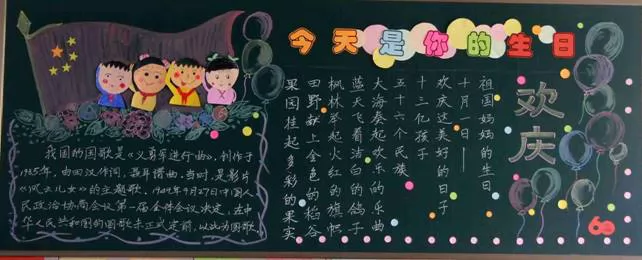 今天是你的生日
我国的国歌是《义勇军进行曲》，创作于
1935年，由田汉作词，聂耳谱曲。当时，是影片
《风云儿女》的主题歌。1949年9月27日中国人
民政治协商会议第一届全体会议决定，在中
华人民共和国的国歌未正式定前，以此为国歌。
欢庆
祖国妈妈的生日
十月一日——
欢庆这美好的日子
十三亿孩子
五十六个民族
大海奏起欢乐的乐曲
蓝天飞着洁白的鸽子
枫林举起火红的旗帜
田野献上金色的稻谷
果园挂起多彩的果实
60